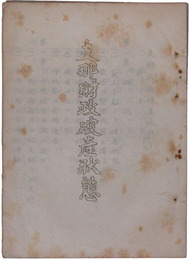 支那財政破産狀態